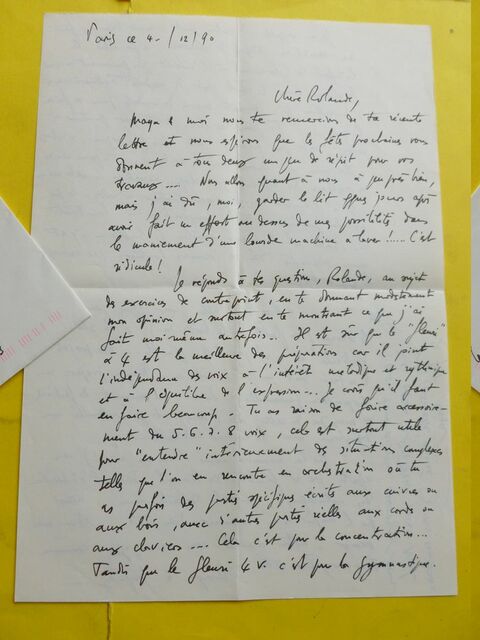 Paris ce 4 - / 12 / 90
Chère Rolande,
Maya & moi nous te remercions de ta récente
lettre et nous espérons que les fêts prochaines vous
donnent à tous deux un peu de répit pour vos
travaux.... Nous allons quant à nous à peu près bien,
mais j'ai dû, moi, garder le lit qqes jours après
avoir fait un effort au dessus de mes possibilités dans
le maniement d'une lourde machine à laver !.... C'est
ridicule !
Je réponds à tes question, Rolande, au sujet
des exercices de contrepoint, en te donnant modestement
mon opinion et surtout en te montrant ce que j'ai
fait moi-même autrefois... Il est sûr que le "fleuri"
à 4 est la meilleure des préparations car il joint
l'indépendance des voix à l'intérêt mélodique et rythmique
et à l'équilibre de l'expression... Je crois qu'il faut
en faire beaucoup. Tu as raison de faire accessoire-
ment du 5.6.7.8 voix, cela est surtout utile
pour "entendre" intérieurement des situations complexes
telles que l'on en rencontre en orchestration où tu
as parfois des parties spécifiques écrites aux cuivres ou
aux bois, avec d'autres parties réelles aux cordes ou
aux claviers.... Cela c'est pour la concentration...
Tandis que le fleuri 4 v. c'est pour la gymnastique.